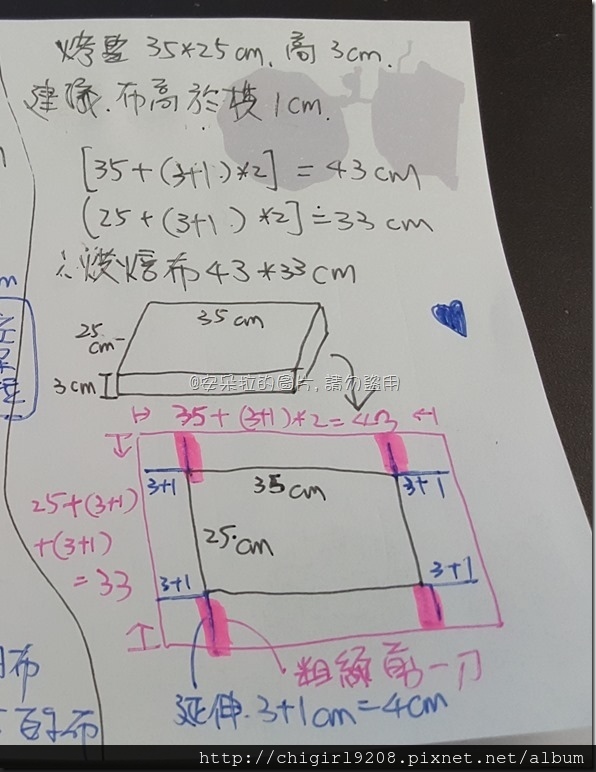 烤盤 35*25cm, 高 3cm.
建議.布高於模 1cm.
[35+(3+1)*2] = 43cm
(25+(3+1)*2]≒33cm
∴烘焙布 43*33cm
35cm
25
cm
3cm
@安朵拉的圖片,請勿盜用
35+(3+1)*2=43
3+1
35cm
3+1
25+(3+1)
+(3+1)
=33
25cm
3+1
3+1
粗線剪一刀
延伸.3+1cm=4cm
布
百ㄎ布
http://chigirl9208.pixnet.net/album